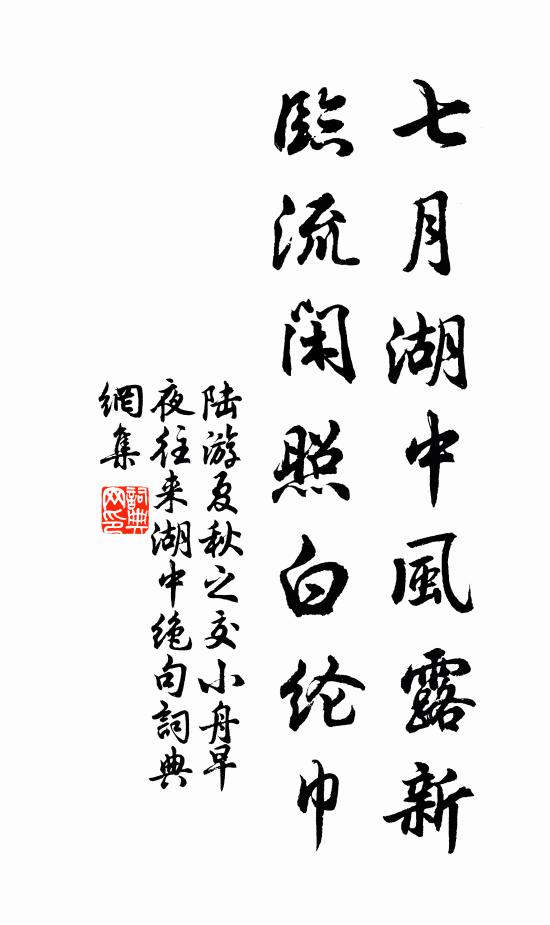 七月湖中風露新
臨流閑照白纶巾
陆游夏秋之交小舟早
夜往来湖中绝句詞典
網集
詞典
网印